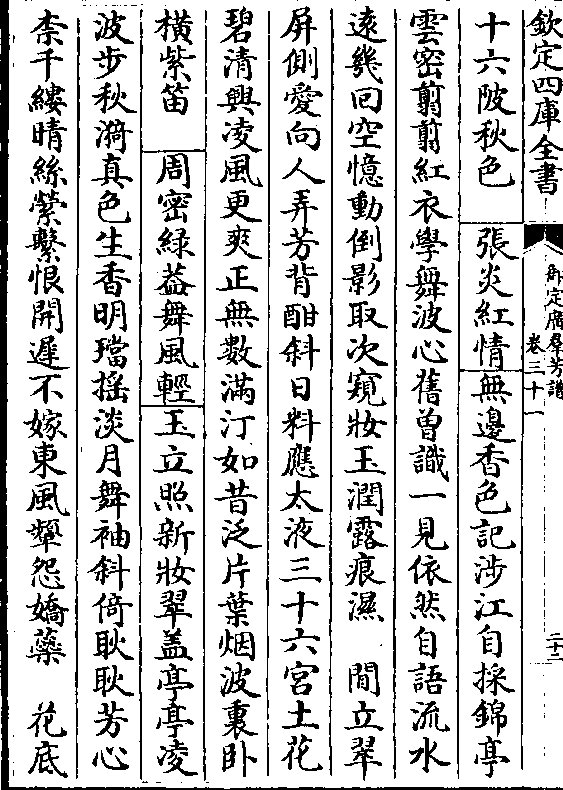 欽定四庫全書
御定廣羣芳譜
卷三十一
二十二
十六陂秋色　張炎紅情無邊香色記涉江自採錦亭
雲密翦翦紅衣學舞波心舊曾識一見依然自語流水
遠幾回空憶動倒影取次窺妝玉潤露痕濕　閒立翠
屏側愛向人弄芳背酣斜日料應太液三十六宮土花
碧清興凌風更爽正無數滿汀如昔泛片葉烟波裏卧
橫紫笛　周密綠葢舞風輕玉立照新妝翠盖亭亭凌
波步秋漪真色生香明璫搖淡月舞袖斜倚耿耿芳心
柰千縷晴絲縈繫恨開遲不嫁東風顰怨嬌藥　花底